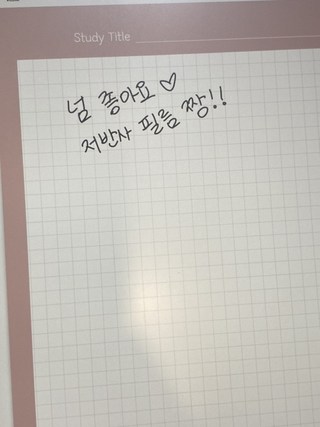 Study Title
넘 좋아요♡
저반사 필름 짱!!